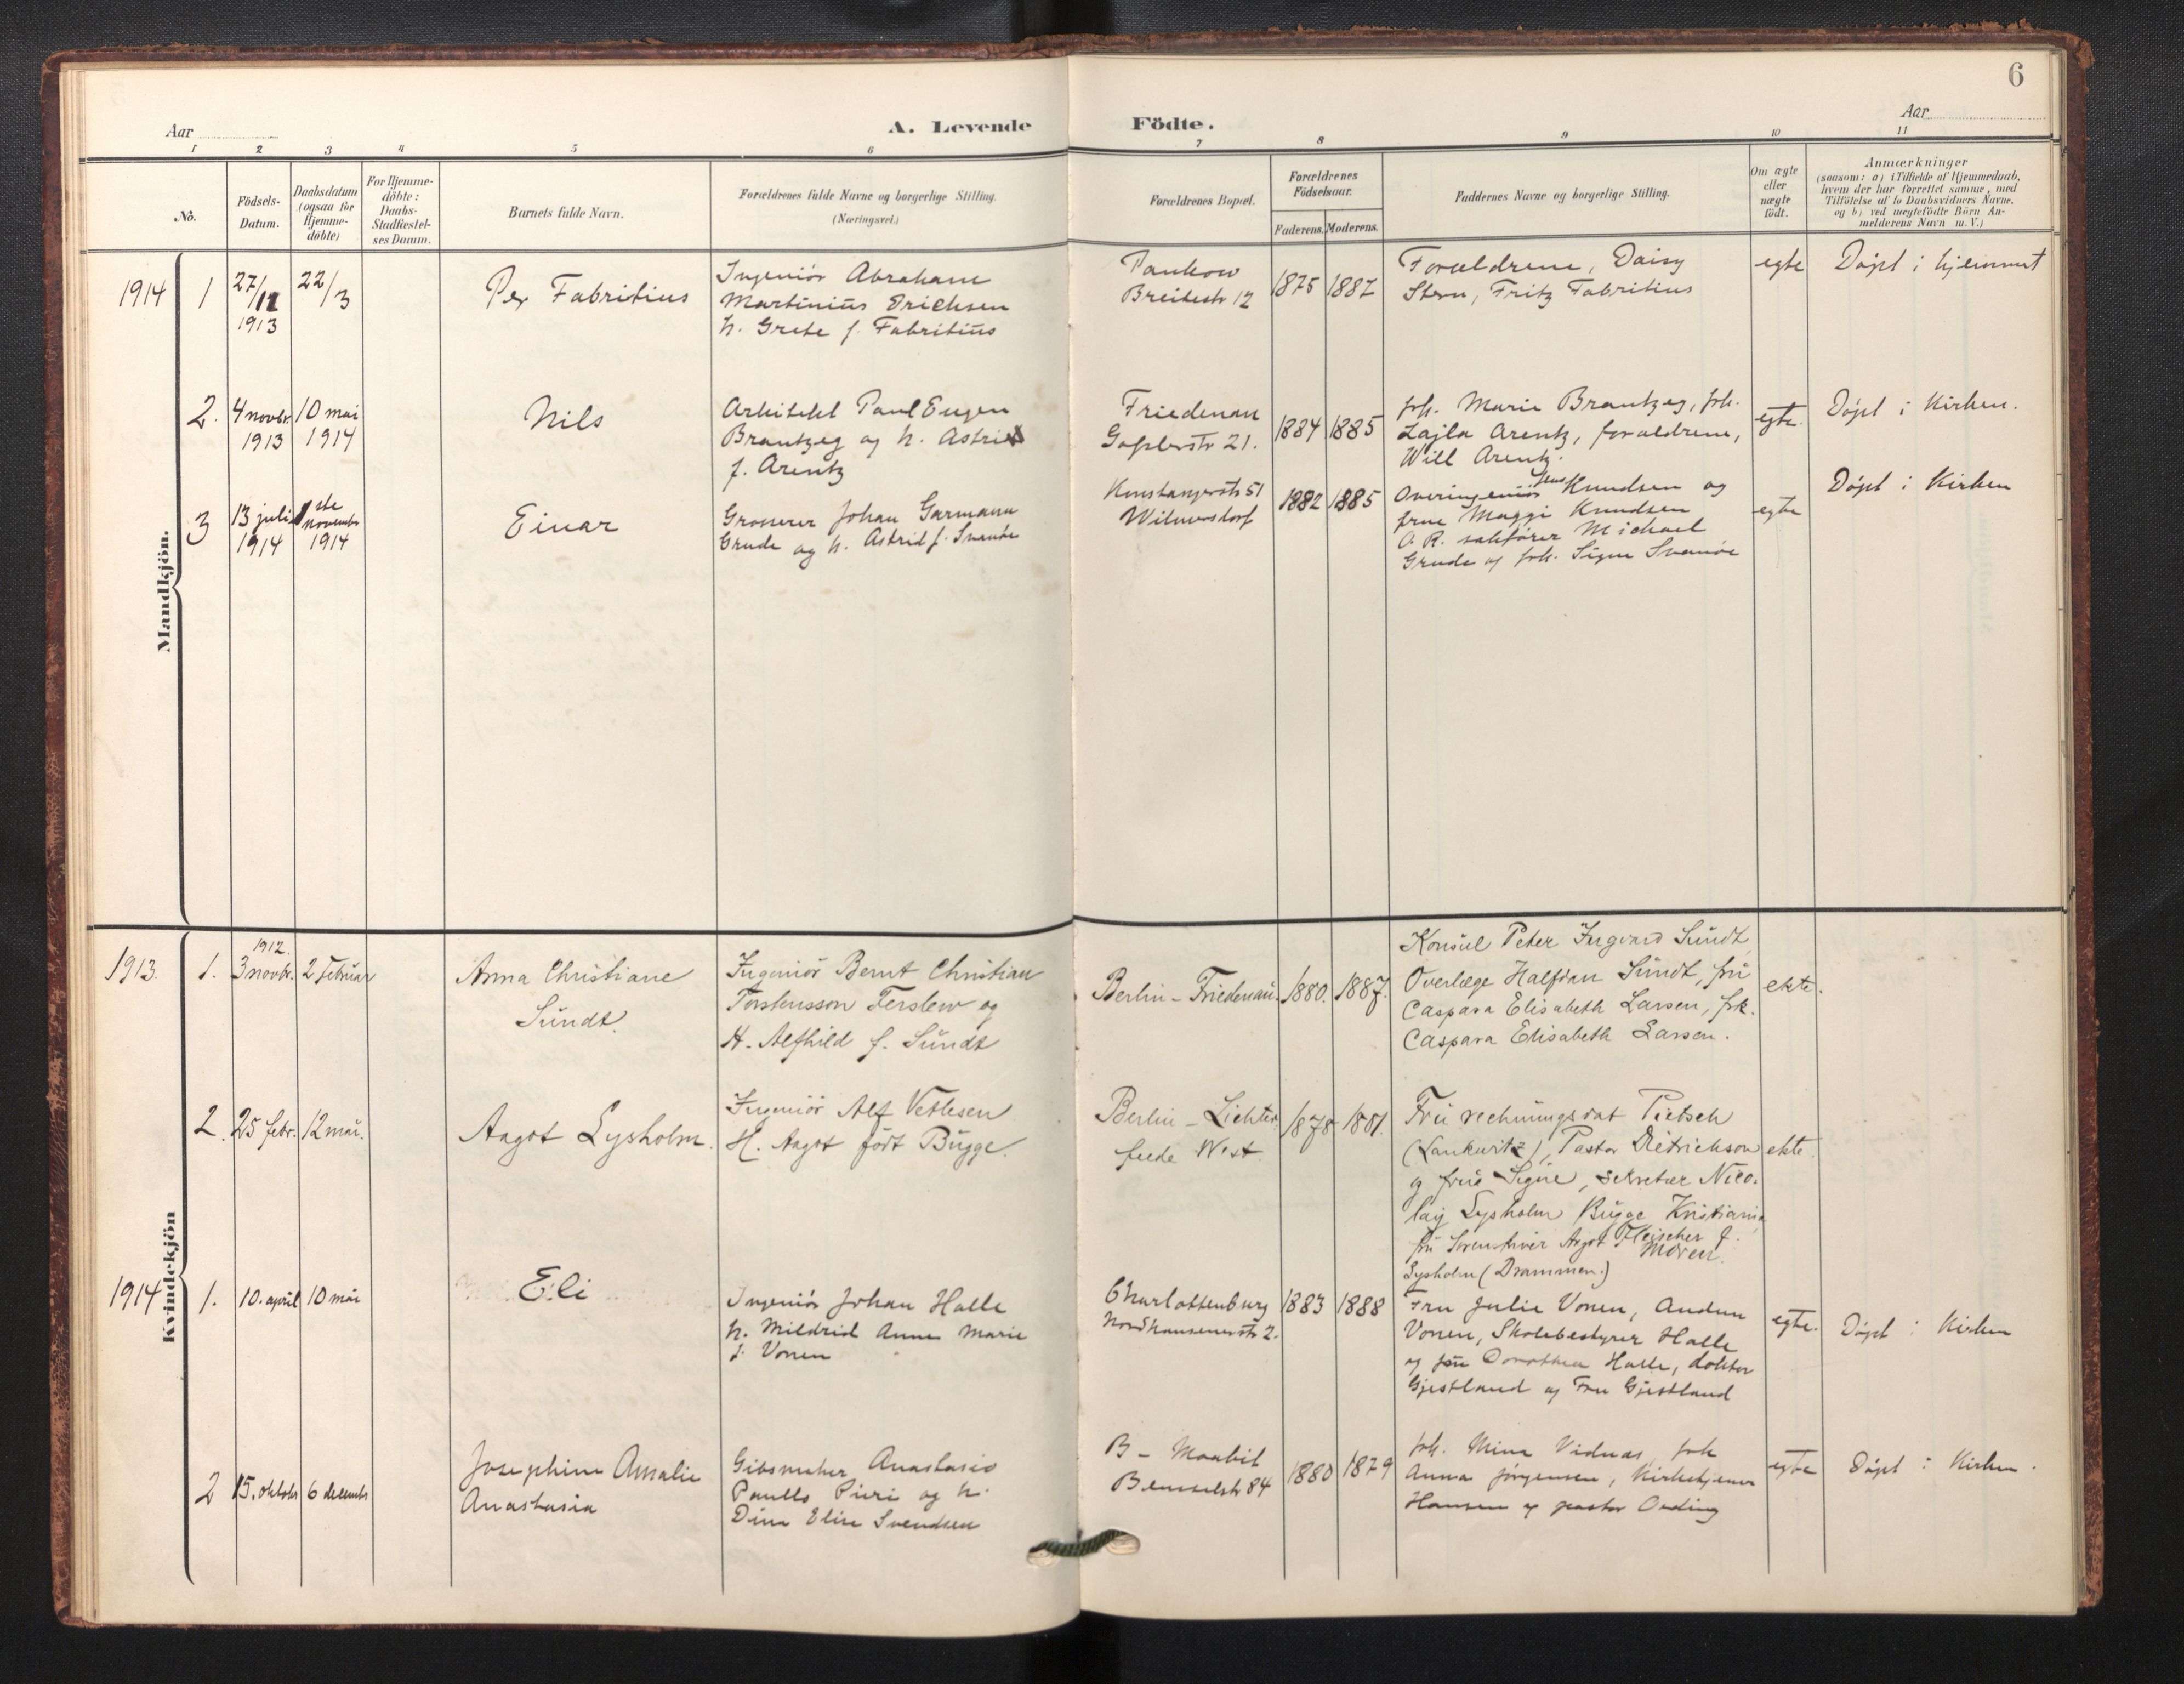 6
Aar
A. Levende Födte.
Aar
1 2 3 4 5 6 7 8 9 10 11
No.
Födsels-
Datum.
Daabsdatum
(ogsaa for
Hjemme-
döbte)
For Hjemme-
döbte:
Daabs-
Stadfæstel-
ses Datum.
Barnets fulde Navn.
Forældrenes fulde Navne og borgerlige Stilling.
(Næringsvei.)
Forældrenes Bopæl.
Forældrenes
Födselsaar.
Faderens. Moderens.
Faddernes Navne og borgerlige Stilling.
Om ægte
eller
uægte
födt.
Anmærkninger
(saasom: a) i Tilfælde af Hjemmedaab,
hvem der har forrettet samme, med
Tilföielse af to Daabsvidners Navne,
og b) ved uægtefödte Börn An-
melderens Navn m. V.)
Mandkjön.
1914 1
27/12
1913
22/3
Per Fabritius
Ingeniör Abraham
Martinius Erichsen
h. Grete f. Fabritius
Pankow
Breitestr 12
1875 1887
Forældrene, Daisy
Stern, Fritz Fabritius
egte
Døpt i hjemmet
2.
4 novbr.
1913
10 mai
1914
Nils
Arkitekt Paul Eugen
Brantzeg og h. Astrid
f. Arentz
Friedenau
Goslerstr 21.
1884 1885
frk. Marie Brantzeg, frk.
Lajla Arentz, forældrene,
Will Arentz.
egte.
Døpt i Kirken.
3
13 juli
1914
1ste
novembr
1914
Einar
Grosserer Johan Garmann
Grude og h. Astrid f. Svanøe
51
Wilmersdorf
1882 1885
Overingeniør Jens Knudsen og
frue Maggi Knudsen
O. R. sakfører Michael
Grude og frk. Signe Svanøe
egte
Døpt i Kirken
Kvindekjön
1913. 1.
1912.
3 novbr. 2 Februar
Anna Christiane
Sundt.
Ingeniör Bernt Christian
Torstensson Ferslew og
H. Alfhild f. Sundt
Berlin - Friedenau.
1880. 1887.
Konsul Peter Ingvard Sundt,
Overlæge Halfdan Sundt, fru
Caspara Elisabeth Larsen, frk.
Caspara Elisabeth Larsen.
ekte.
2. 25 febr. 12 mai.
Aagot Lysholm.
Ingeniör Alf Vetlesen
H. Aagot födt Bugge.
Berlin - Lichter
felde West.
1878 1881.
Fru rechnungsrat Pietsch
(Lankwitz), Pastor Dietrichson
og frue Signe, sekretær Nico-
lay Lysholm Bugge Kristiania
fru Sorenskriver Aagot Fleischer f.
Lysholm (Drammen.) Moren.
ekte.
1914 1. 10. april 10 mai
Eli
Ingeniör Johan Halle
h. Mildrid Anna Marie
f. Vonen
Charlottenburg
Nordhausenerstr 2.
1883 1888
Fru Julie Vonen, Audun
Vonen, Skolebestyrer Halle
og fru Dorothea Halle, doktor
Gjestland og Fru Gjestland
egte.
Døpt i Kirken
2 15. oktobr 6 decembr
Josephine Amalie
Anastasia
Gibsmaker Anastasio
Paullo Pieri og h.
Dina Elise Svendsen
B - Moabit
Beusselstr 84
1880 1879
frk. Mina Vidnes, frk
Anna Jørgensen, Kirketjener
Hansen og pastor Ording
egte
Døpt i Kirken.